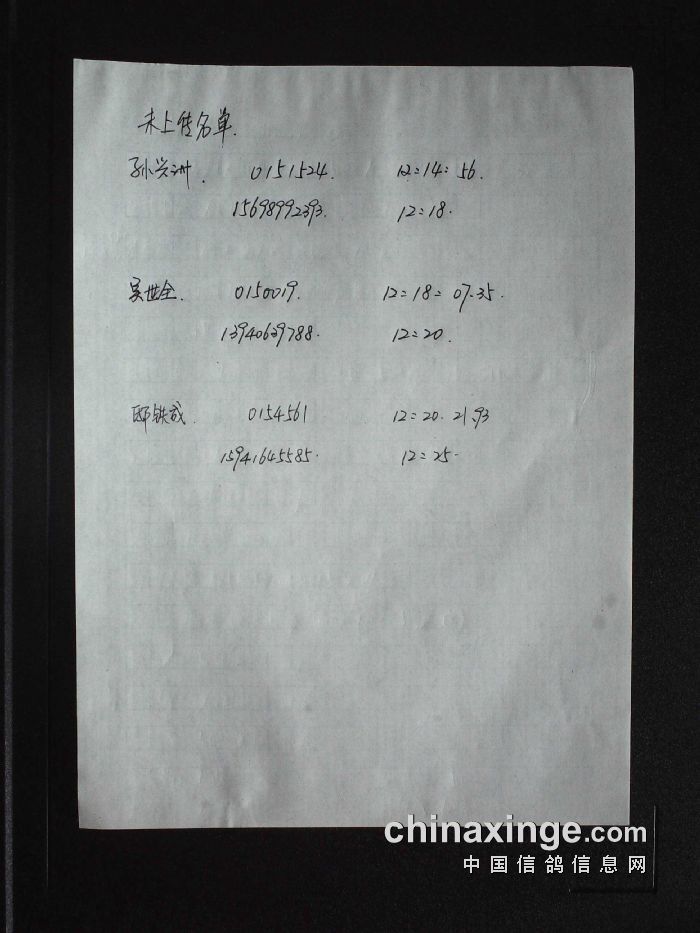 未上传名单.
孙兴洲. 0151524. 12:14:56.
15698992393. 12:18.
吴世全. 0150019. 12:18:07.35.
13940629788. 12:20.
邸铁成. 0154561 12:20.21.93
15941645585. 12:25.
chinaxinge.com
中国信鸽信息网